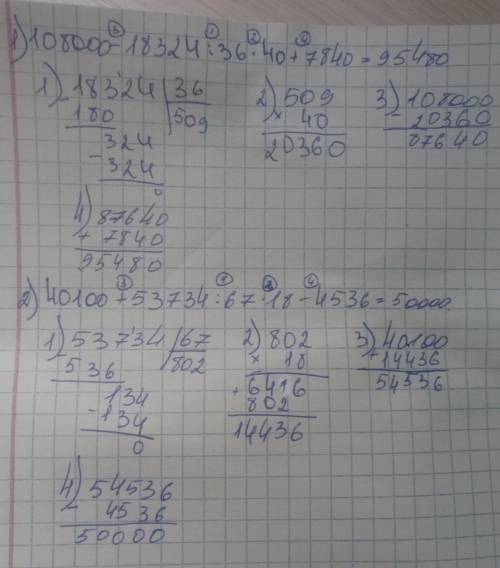 ③ ① ② ④
1) 108000 - 18324 : 36 · 40 + 7840 = 95480
1) 18324 | 36 2) 509 3) 108000
- 180 | 509 × 40 - 20360
324 20360 87640
- 324
0
4) 87640
+ 7840
95480
③ ① ② ④
2) 40100 + 53734 : 67 · 18 - 4536 = 50000.
1) 53734 | 67 2) 802 3) 40100
- 536 | 802 × 18 + 14436
134 + 6416 54536
- 134 802
0 14436
4) 54536
- 4536
50000